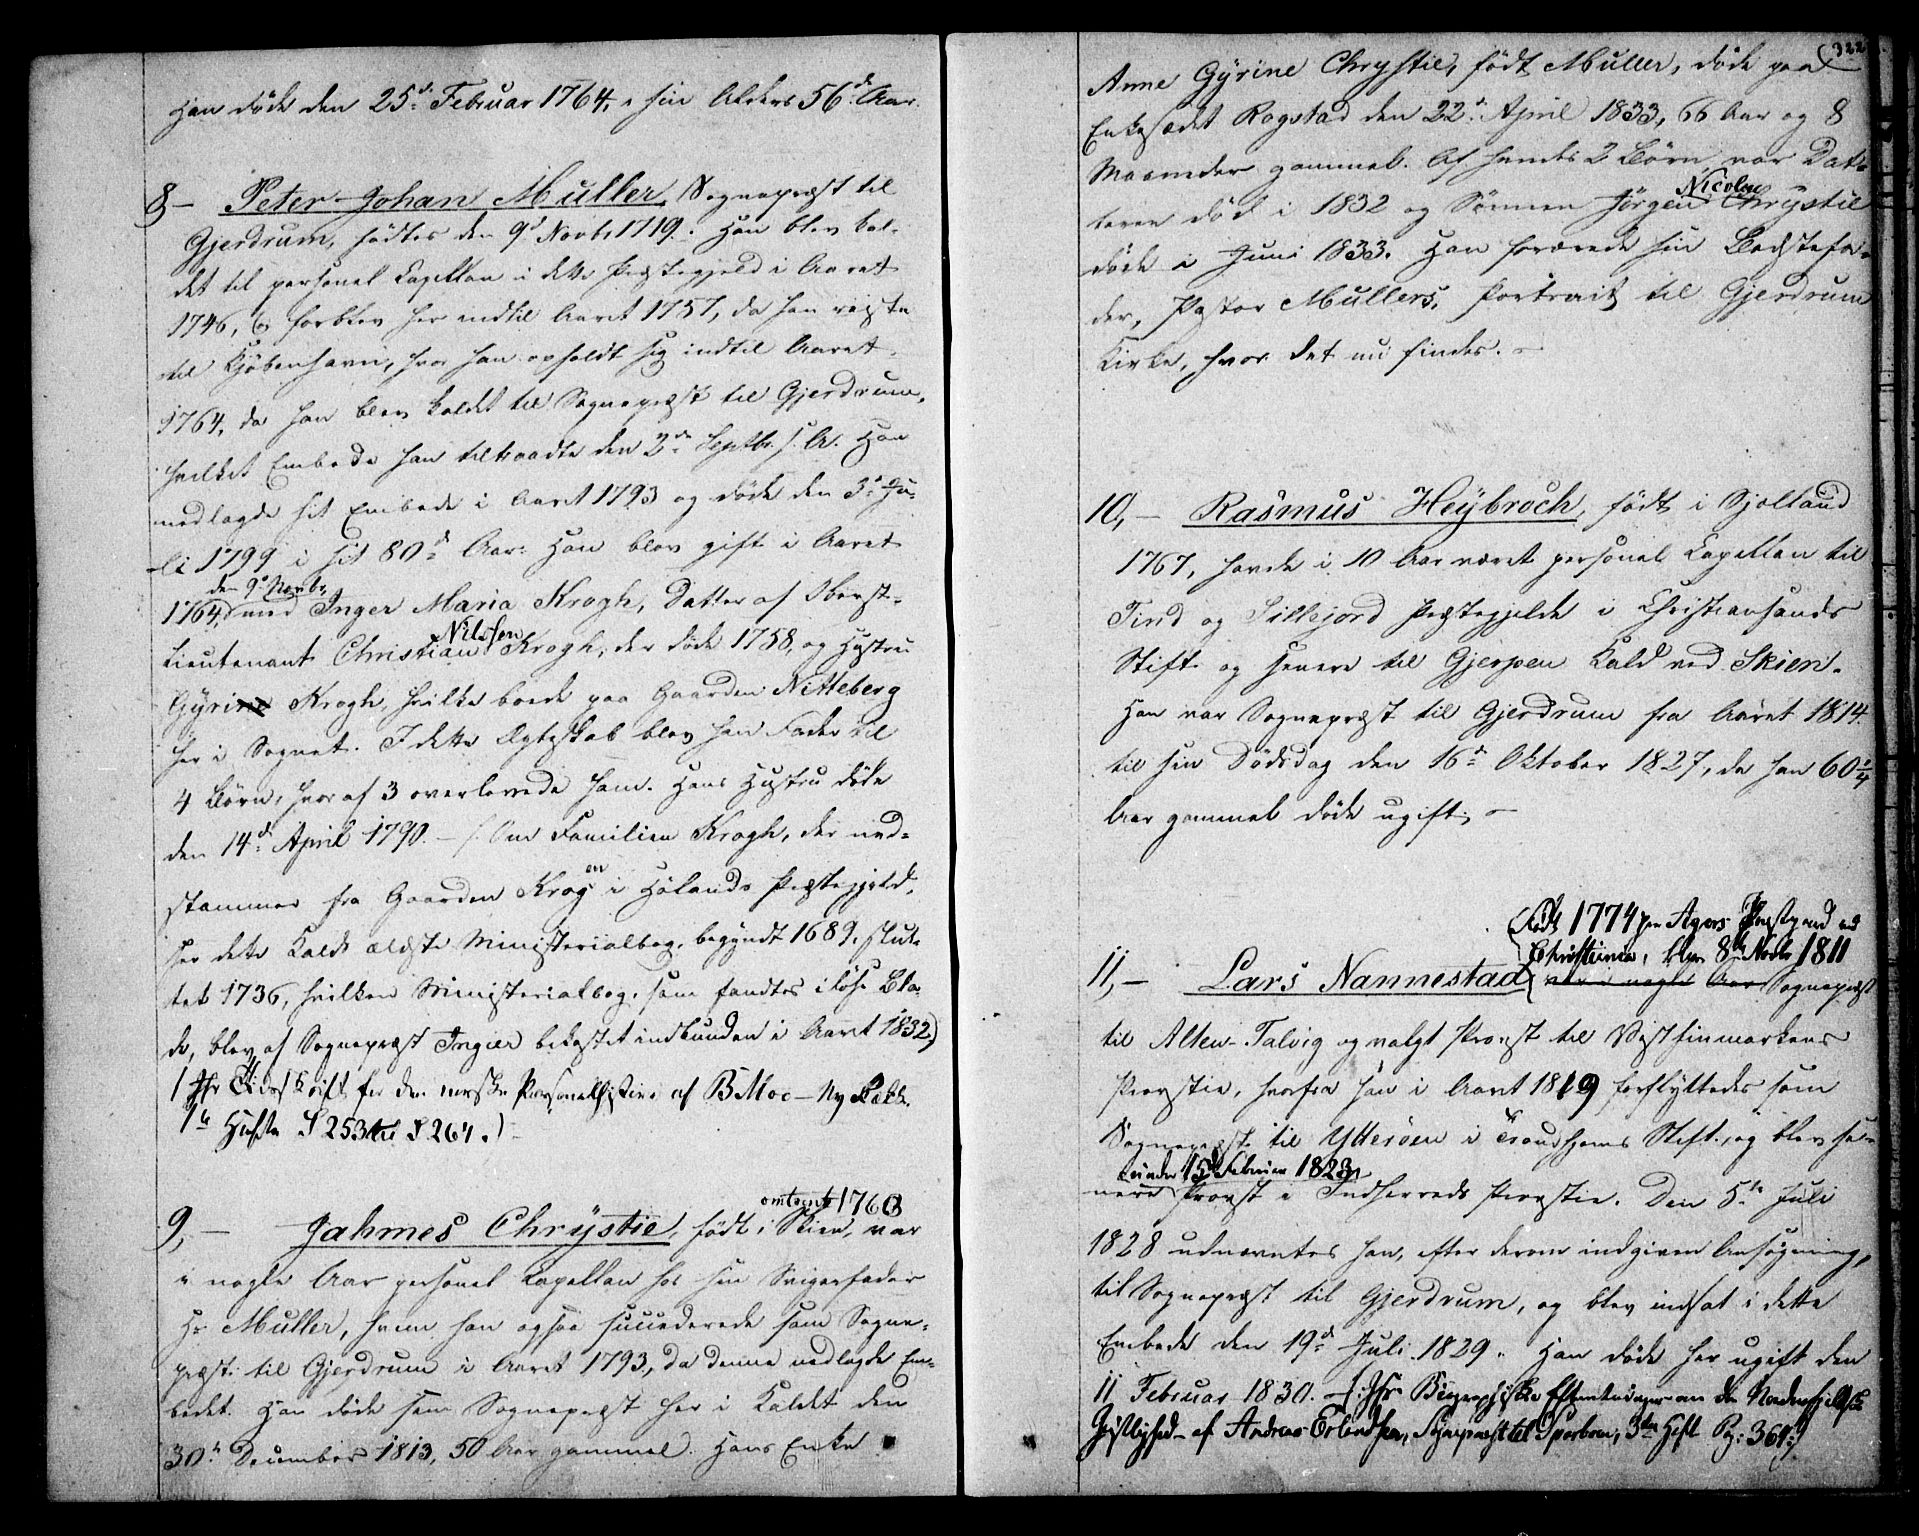 Han døde den 25d. Februar 1764, i sin Alders 56d. Aar.
8 – Peter Johan Muller, Sognepræst til
Gjerdrum, fødtes den 9d Novbr 1719. Han blev kal-
det til personel Capellan i dette Præstegjeld i Aaret
1746, og forblev her indtil Aaret 1757, da han reiste
til Kjøbenhavn, hvor han opholdt sig indtil Aaret
1764, da han blev kaldet til Sognepræst til Gjerdrum,
hvilket Embede han tiltraadte den 2den Septbr. s. A. Han
nedlagde sit Embede i Aaret 1793 og døde den 3d Ju-
li 1799 i sit 80d. Aar. Han blev gift i Aaret
den 9d Novbr.
1764, med Inger Maria Krogh, Datter af Oberst-
Nilssen
Lieutenant Christian Krogh, der døde 1758, og Hustru
Gyrine Krogh, hvilke boede paa Gaarden Nitteberg
her i Sognet. I dette Ægteskab blev han Fader til
4 Børn, hvoraf 3 overlevede ham. Hans Hustru døde
den 14d. April 1790. – (Om Familien Krogh, der ned-
stammer fra Gaarden Krogen i Hølands Præstegjeld,
see dette Kalds ældste Ministerialbog, begyndt 1689, slut-
tet 1736, hvilken Ministerialbog, som fandtes i løse Bla-
de, blev af Sognepræst Ingier bekostet indbunden i Aaret 1832.)
(Jfr Tidsskrift for den norske Personalhistorie af B Moe – Ny Række
1te Hefte S 253 til S 264.)
omtrent 1763
9, – Jahmes Chrystie, født i Skien, var
i nogle Aar personel Capellan hos sin Svigerfader
Hr Muller, hvem han ogsaa succederede som Sogne-
præst til Gjerdrum i Aaret 1793, da denne nedlagde Em-
bedet. Han døde som Sognepræst her i Kaldet den
30d. December 1813, 50 Aar gammel. Hans Enke
322
Anne Gyrine Chrystie, født Muller, døde paa
Enkesædet Rogstad den 22d. April 1833, 66 Aar og 8
Maaneder gammel. Af hendes 2 Børn var Dat-
Nicolay
teren død i 1832 og Sønnen Jørgen Chrystie
døde i Juni 1833. Han forærede sin Bedstefa-
der, Pastor Mullers, Portrait til Gjerdrum
Kirke, hvor det nu findes. –
10, – Rasmus Heybroch, født i Sjelland
1767, havde i 10 Aar været personel Capellan til
Tind og Sillejord Præstegjelde i Christiansands
Stift og senere til Gjerpen Kald ved Skien.
Han var Sognepræst til Gjerdrum fra Aaret 1814
til sin Dødsdag den 16d. Oktober 1827, da han 60 1/4
Aar gammel døde ugift. –
(født 1774 paa Agers Præstgaard ved
Christiania, blev 8de Novbr 1811
11, – Lars Nannestad var i nogle Aar Sognepræst
til Alten-Talvig og valgt Provst til Vestfinmarkens
Provstie, hvorfra han i Aaret 1819 forflyttedes som
Sognepræst til Ytterøen i Trondhjems Stift, og blev se-
under 15d Februar 1823
nere Provst i Indherreds Provstie. Den 5te Juli
1828 udnævntes han, efter derom indgiven Ansøgning,
til Sognepræst til Gjerdrum, og blev indsat i dette
Embede den 19d. Juli 1829. Han døde her ugift den
11 Februar 1830. – (Jfr Biographiske Efterretninger om den Nordenfjeldske
Geistlighed – af Andreas Erlandsen, Sognepræst til Sparboen, 3die Heft Pg: 361.)